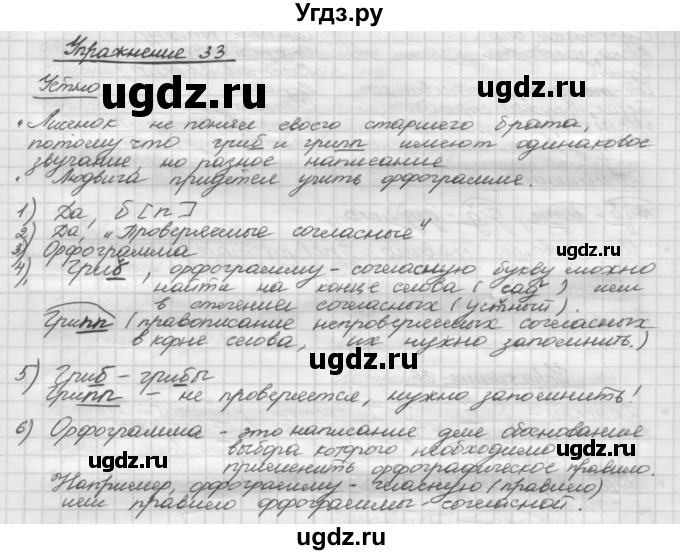 Угдз.ру
Упражнение 33
Устно
ugdz.ru ugdz.ru
• Лисенок не понял своего старшего брата,
потому что гриб и грипп имеют одинаковое
звучание, но разное написание
• Людвига придется учить орфограмме.
ugdz.ru ugdz.ru
1) Да, б [п]
2) Да, „Проверяемые согласные"
3) Орфограмма
4) Гриб, орфограмму - согласную букву можно
найти на конце слова (сад) или
в стечении согласных (устный).
Грипп (правописание непроверяемых согласных
в корне слова, их нужно запомнить.)
ugdz.ru ugdz.ru
5) Гриб - грибы
Грипп - не проверяется, нужно запомнить!
6) Орфограмма - это написание для обоснования
выбора которого необходимо
применить орфографическое правило.
ugdz.ru ugdz.ru
Например, орфограмму - гласную (правило)
или правило орфограммы - согласной.